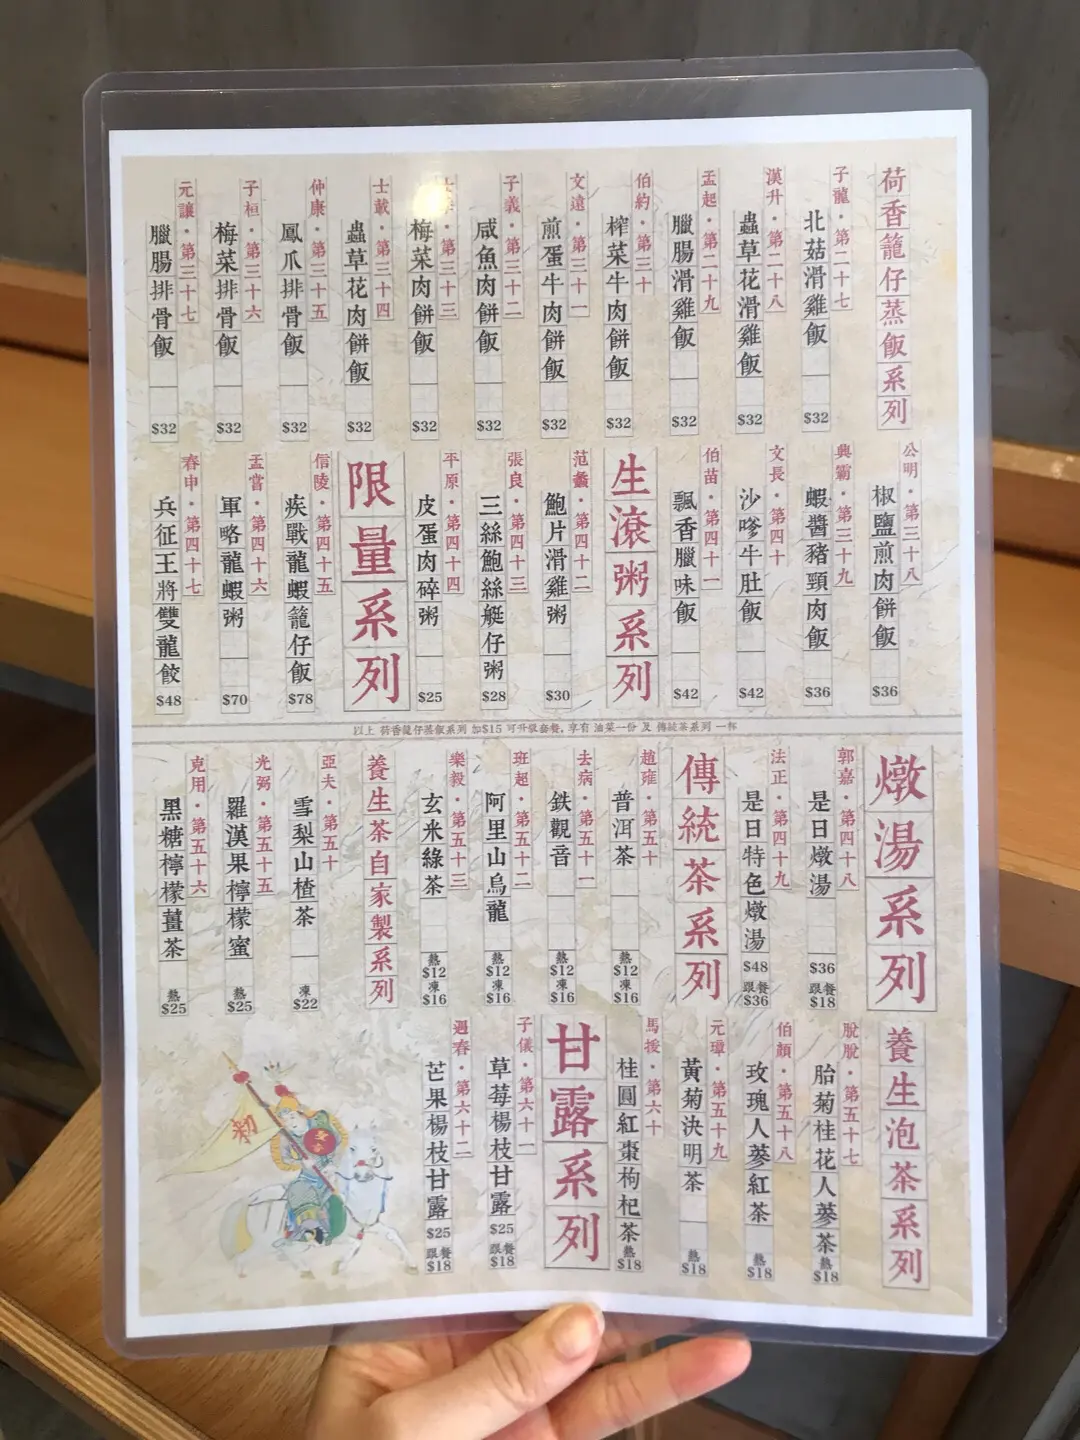 荷香籠仔蒸飯系列
子龍・第二十七
北菇滑雞飯
$32
漢升・第二十八
蟲草花滑雞飯
$32
孟起・第二十九
臘腸滑雞飯
$32
伯約・第三十
榨菜牛肉餅飯
$32
文遠・第三十一
煎蛋牛肉餅飯
$32
子義・第三十二
咸魚肉餅飯
$32
第三十三
梅菜肉餅飯
$32
士載・第三十四
蟲草花肉餅飯
$32
仲康・第三十五
鳳爪排骨飯
$32
子桓・第三十六
梅菜排骨飯
$32
元讓・第三十七
臘腸排骨飯
$32
公明・第三十八
椒鹽煎肉餅飯
$36
典霸・第三十九
蝦醬豬頸肉飯
$36
文長・第四十
沙嗲牛肚飯
$42
伯苗・第四十一
飄香臘味飯
$42
生滾粥系列
范蠡・第四十二
鮑片滑雞粥
$30
張良・第四十三
三絲鮑絲艇仔粥
$28
平原・第四十四
皮蛋肉碎粥
$25
限量系列
信陵・第四十五
疾戰龍蝦籠仔飯
$78
孟嘗・第四十六
軍略龍蝦粥
$70
春申・第四十七
兵征王將雙龍餃
$48
以上 荷香籠仔蒸飯系列 加$15 可升級套餐, 享有 油菜一份 及 傳統茶系列 一杯
燉湯系列
郭嘉・第四十八
是日燉湯
$36
跟餐
$18
法正・第四十九
是日特色燉湯
$48
跟餐
$36
傳統茶系列
趙雍・第五十
普洱茶
熱
$12
凍
$16
去病・第五十一
鉄觀音
熱
$12
凍
$16
班超・第五十二
阿里山烏龍
熱
$12
凍
$16
樂毅・第五十三
玄米綠茶
熱
$12
凍
$16
養生茶自家製系列
亞夫・第五十
雪梨山楂茶
凍
$22
光弼・第五十五
羅漢果檸檬蜜
熱
$25
克用・第五十六
黑糖檸檬薑茶
熱
$25
養生泡茶系列
脫脫・第五十七
胎菊桂花人蔘茶
熱
$18
伯顏・第五十八
玫瑰人蔘紅茶
熱
$18
元璋・第五十九
黃菊決明茶
熱
$18
馬援・第六十
桂圓紅棗枸杞茶
熱
$18
甘露系列
子儀・第六十一
草莓楊枝甘露
$25
跟餐
$18
遇春・第六十二
芒果楊枝甘露
$25
跟餐
$18